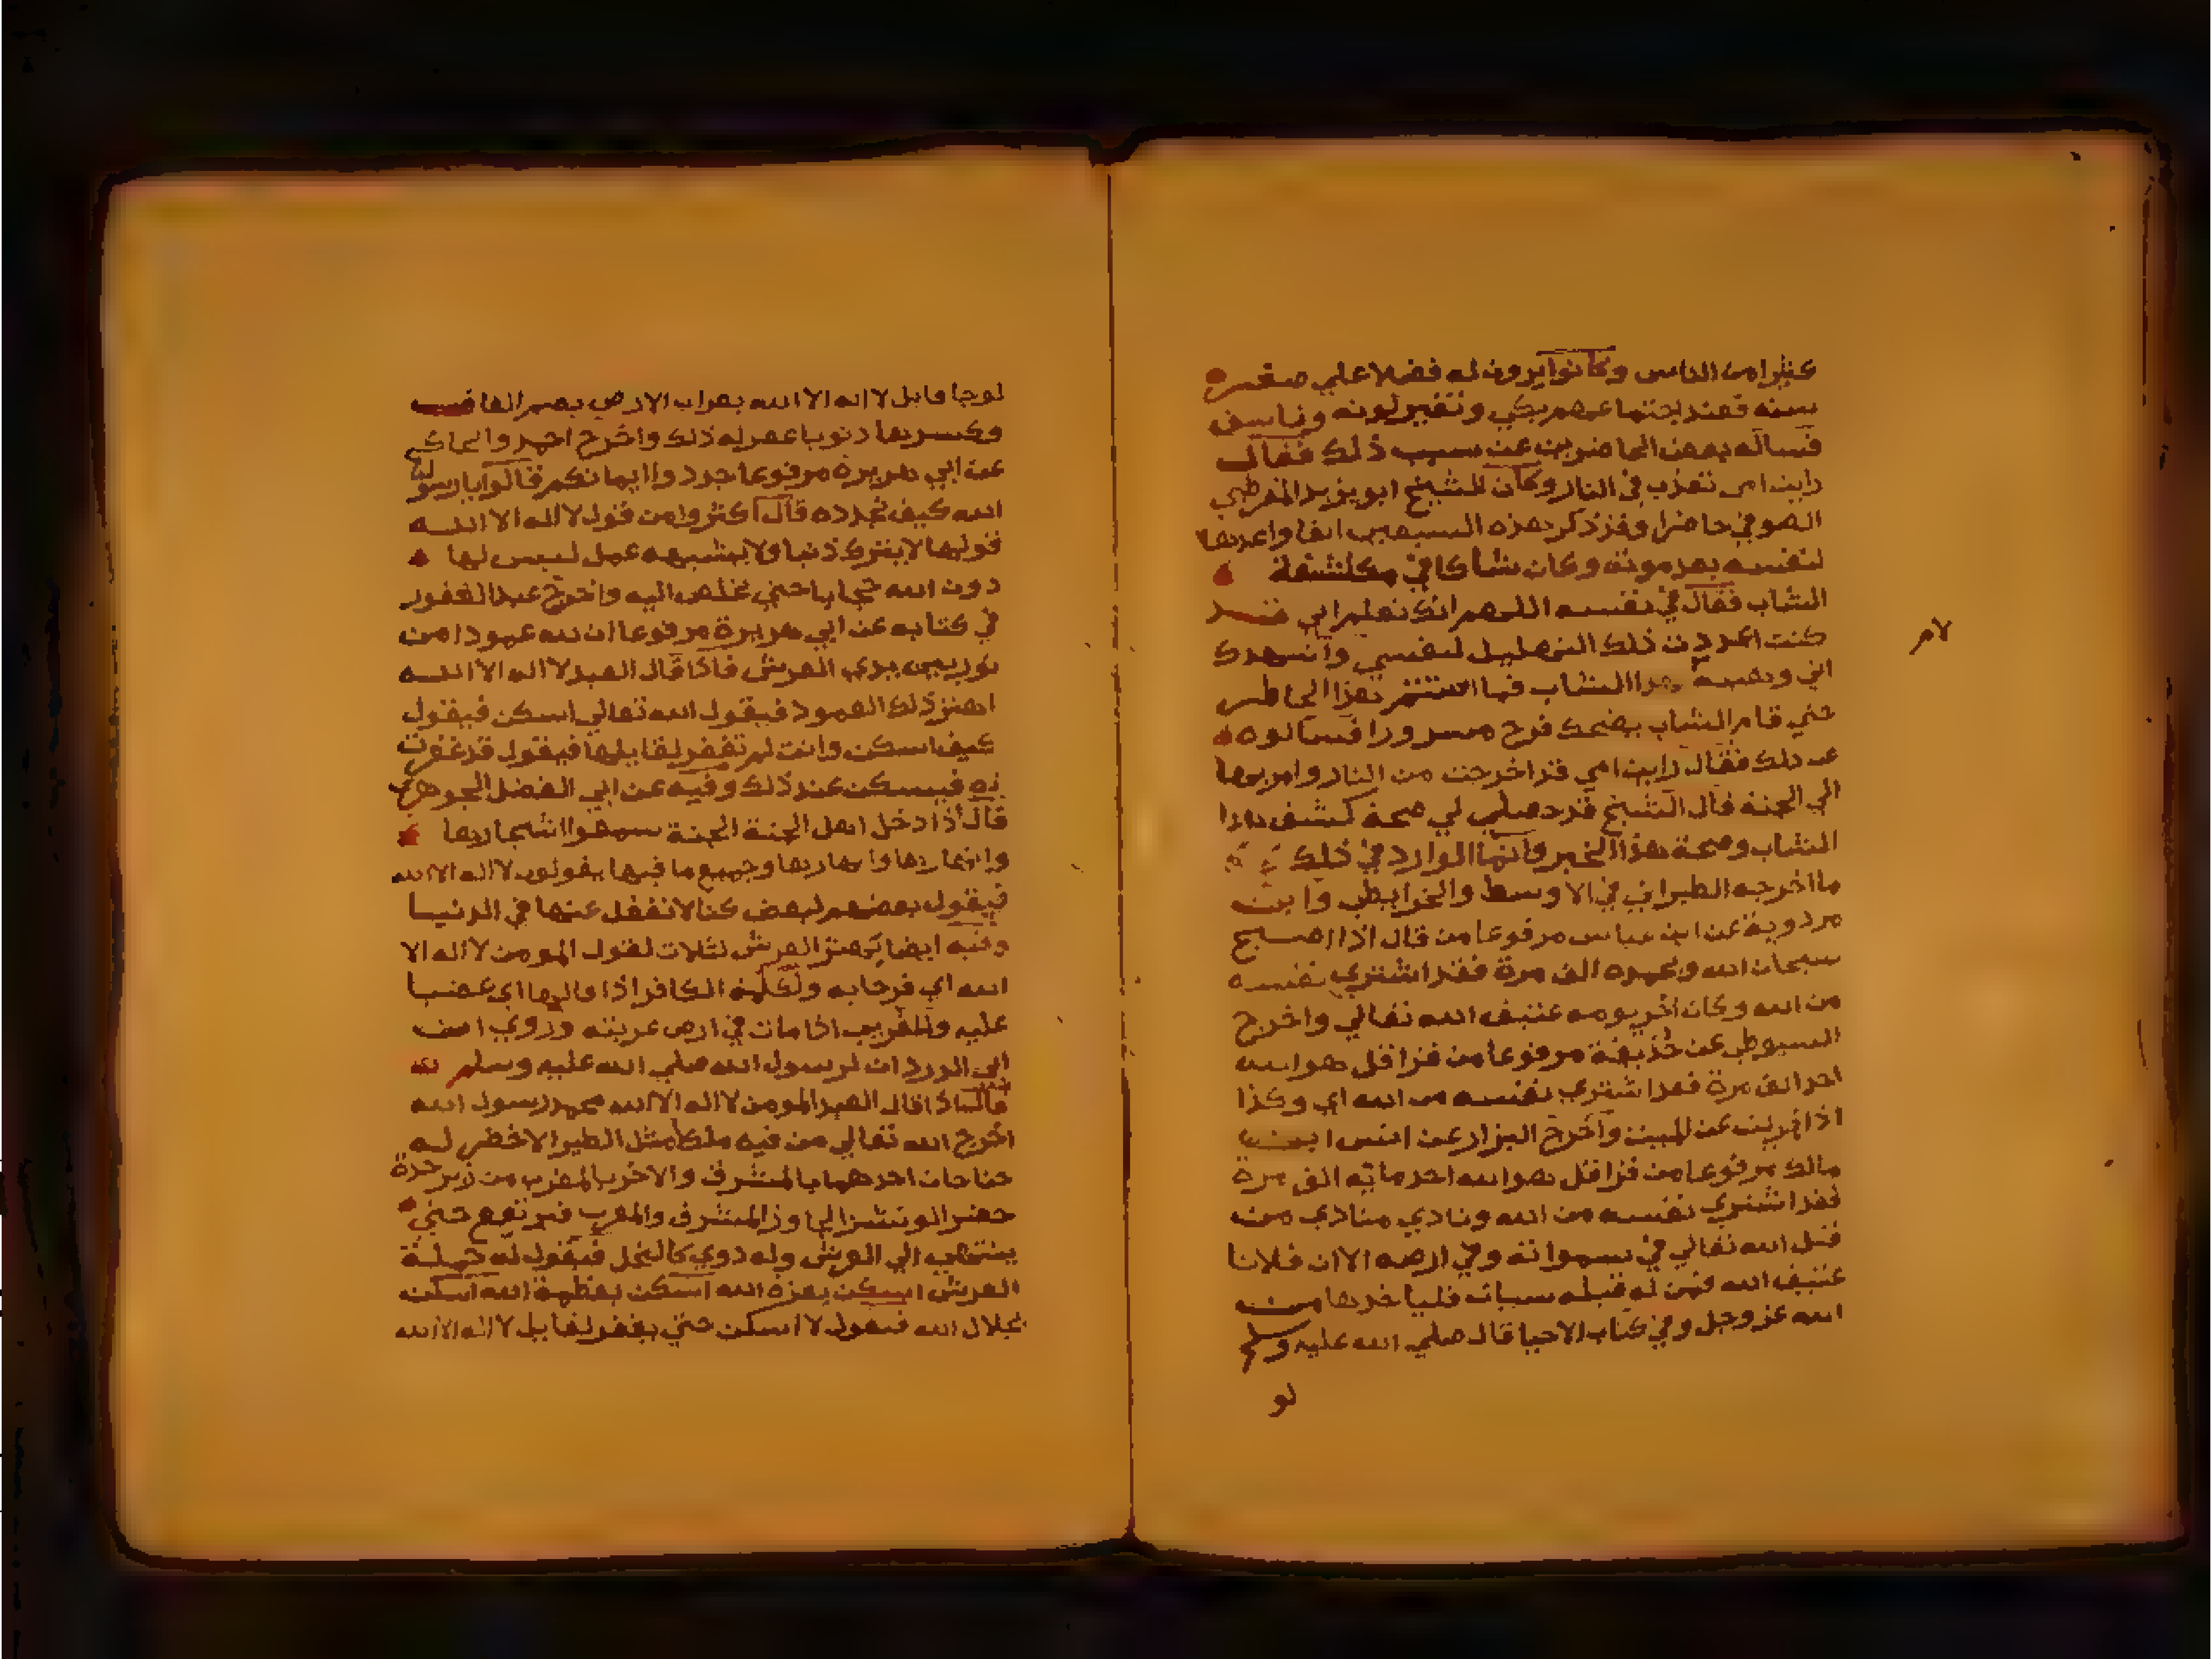 كثيرا من الناس وكانوا يرون له فضلا علي صغر
سنه فعند اجتماعهم بكي وتغير لونه وتاسف
فساله بعض الحاضرين عن سبب ذلك فقال
رايت امي تعذب في النار وكان الشيخ ابو يزيد القرطبي
الصوفي حاضرا وقد ذكر هذه السبعين الفا واعدها
لنفسه بعد موته وكان شاكا في مكاشفة
الشاب فقال في نفسه اللهم انك تعلم اني قد
كنت اعددت ذلك التهليل لنفسي واشهدك
اني وهبته هذا الشاب فما استتم هذا الخاطر
حتي قام الشاب يضحك فرح مسرورا فسالوه
عن ذلك فقال رايت امي قد اخرجت من النار وامر بها
الي الجنة قال الشيخ قد حصلي لي صحة كشف هذا
الشاب وصحة هذا الخبر وانما الوارد في ذلك
ما اخرجه الطبراني في الاوسط والخرايطي وابن
مردوية عن ابن عباس مرفوعا من قال اذا اصبح
سبحان الله وبحمده الف مرة فقد اشتري نفسه
من الله وكان اخر يومه عتيق الله تعالي واخرج
السيوطي عن حذيفة مرفوعا من قرا قل هو الله
احد الف مرة فقد اشتري نفسه من الله اي وكذا
اذا قريت عن الميت واخرج البزار عن انس ابن
مالك مرفوعا من قرا قل هو الله احد ماية الف مرة
فقد اشتري نفسه من الله ونادي منادي من
قبل الله تعالي في سمواته وفي ارضه الا ان فلانا
عتيق الله فمن له قبله فلياخذها من
الله عز وجل وفي كتاب الاحيا قال صلي الله عليه وسلم
لو
لام
لو جا قايل لا اله الا الله بقراب الارض بضم القاف
وكسرها ذنوبا غفر له ذلك واخرج احمد والحاكم
عن ابي هريرة مرفوعا جددوا ايمانكم قالوا يا رسول
الله كيف نجدده قال اكثروا من قول لا اله الا الله
قولها لا يترك ذنبا ولا يشبهه عمل ليس لها
دون الله حجابا حتي تخلص اليه واخرج عبد الغفور
في كتابه عن ابي هريرة مرفوعا ان لله عمودا من
نور بين يدي العرش فاذا قال العبد لا اله الا الله
اهتز ذلك العمود فيقول الله تعالي اسكن فيقول
كيف اسكن وانت لم تغفر لقايلها فيقول قد غفرت
له فيسكن عند ذلك وفيه عن ابي الفضل الجوهري
قال اذا دخل اهل الجنة الجنة سمعوا اشجارها
وانهارها وجميع ما فيها يقولون لا اله الا الله
فيقول بعضهم لبعض كنا لا نغفل عنها في الدنيا
وفيه ايضا يهتز العرش لثلاث لقول المومن لا اله الا
الله اي فرحا به ولكلمة الكافر اذا قالها اي غضبا
عليه وللغريب اذا مات في ارض غربته وروي ابن
ابي الدرداء ان رسول الله صلي الله عليه وسلم
قال اذا قال العبد المومن لا اله الا الله محمد رسول الله
اخرج الله تعالي من فيه ملكا مثل الطير الاخضر له
جناحان احدهما بالمشرق والاخر بالمغرب من زبرجدة
المشرق والمغرب فيرتفع حتي
ينتهي الي العرش وله دوي كالنحل فيقول له حملة
العرش اسكن بعزة الله اسكن بعظمة الله اسكن
بجلال الله فيقول لا اسكن حتي يغفر لقايل لا اله الا الله